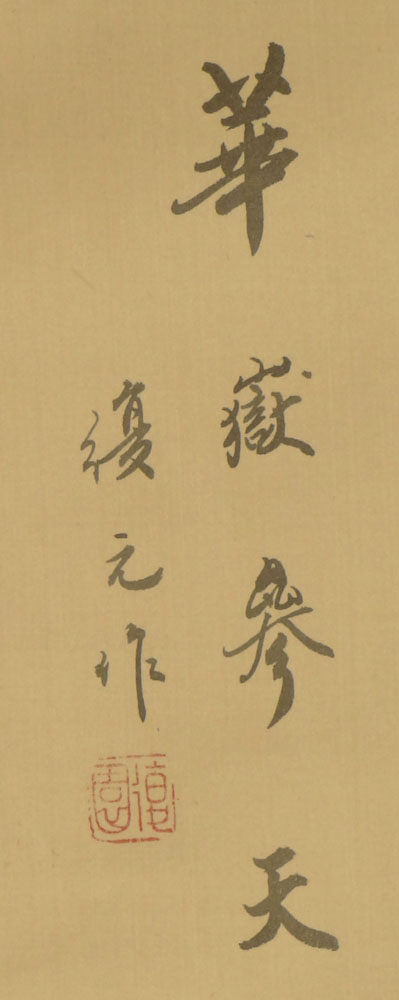 華嶽參天
復元作